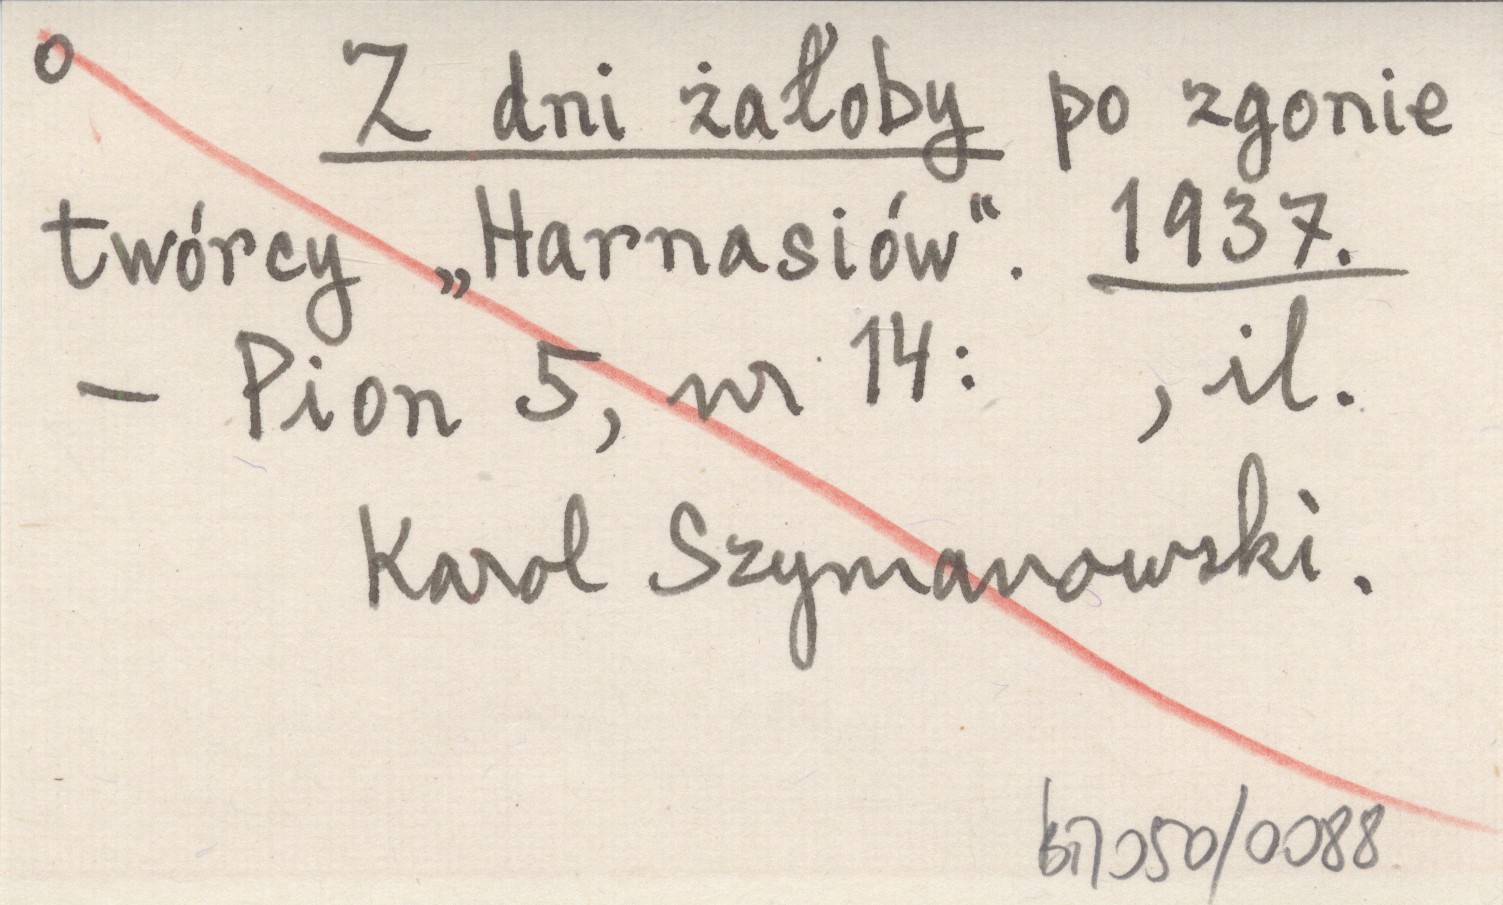 o Z dni żałoby po zgonie
twórcy „Harnasiów“. 1937.
– Pion 5, nr 14: , il.
Karol Szymanowski.
050/0088